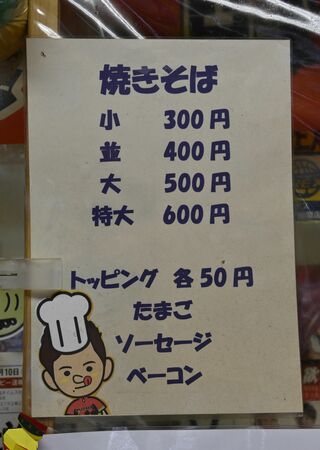 焼きそば
小 300円
並 400円
大 500円
特大 600円
トッピング 各50円
たまご
ソーセージ
ベーコン
月10日